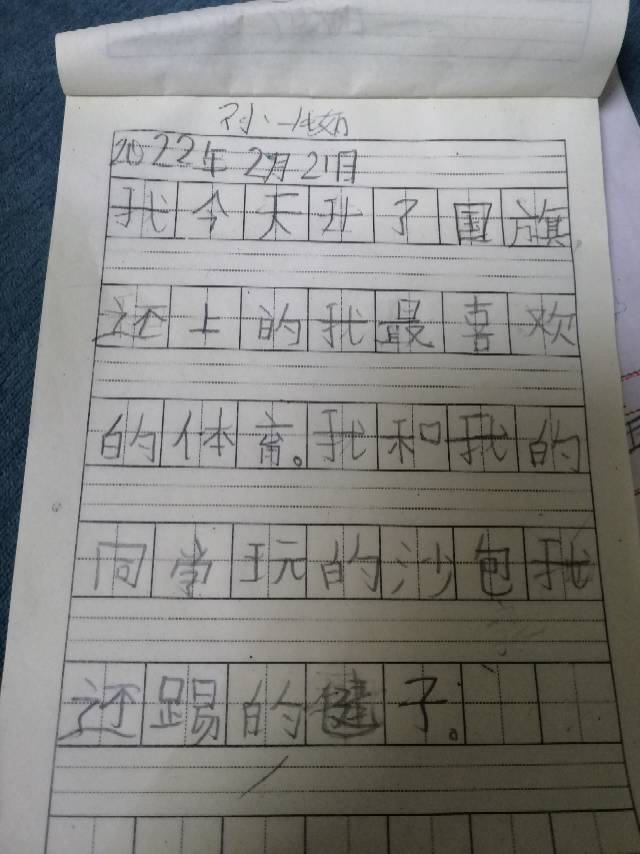 2022年2月21日
我今天升了国旗
还上的我最喜欢
的体育。我和我的
同学玩的沙包我
还踢的毽子。